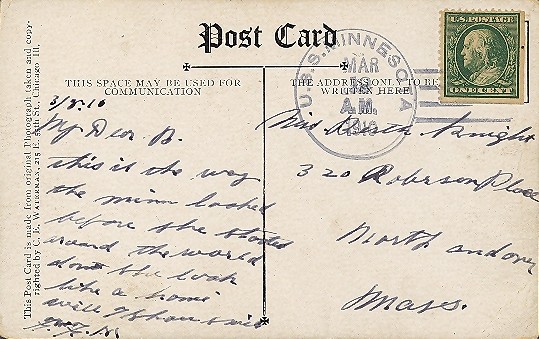 Post Card
THIS SPACE MAY BE USED FOR
COMMUNICATION
THE ADDRESS ONLY TO BE
WRITTEN HERE
U.S. POSTAGE
ONE CENT
U.S.S. MINNESOTA
MAR
A.M.
1910
This Post Card is made from original Photograph taken and copy-
righted by C. E. WATERMAN, 215 E. 55th St., Chicago Ill.
3/8.10
My Dear B.
this is the way
the minn looked
before she started
around the world
dont she look
like a
will
Miss Knight
320 Place
North andover
Mass.